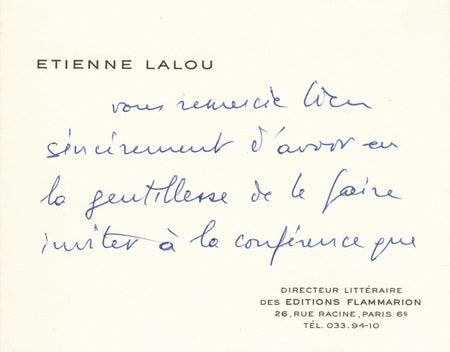 ETIENNE LALOU
vous remercie bien
sincèrement d'avoir eu
la gentillesse de le faire
inviter à la conférence que
DIRECTEUR LITTÉRAIRE
DES EDITIONS FLAMMARION
26, RUE RACINE, PARIS 6e
TÉL. 033.94-10